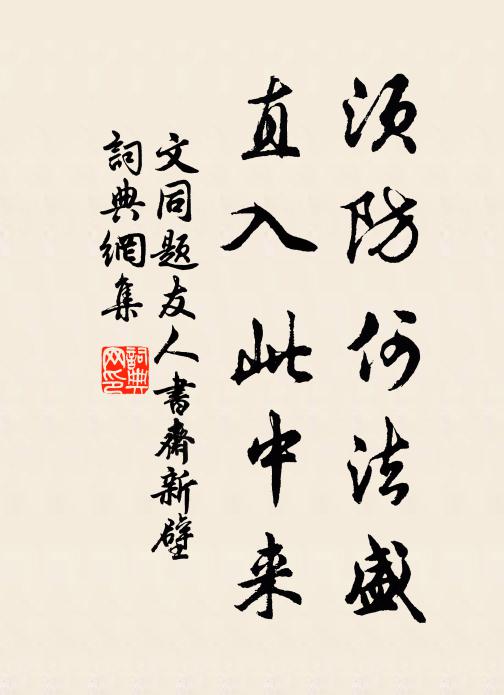 须防何法盛
直入此中来
文同题友人書齋新壁
詞典網集
詞典网印